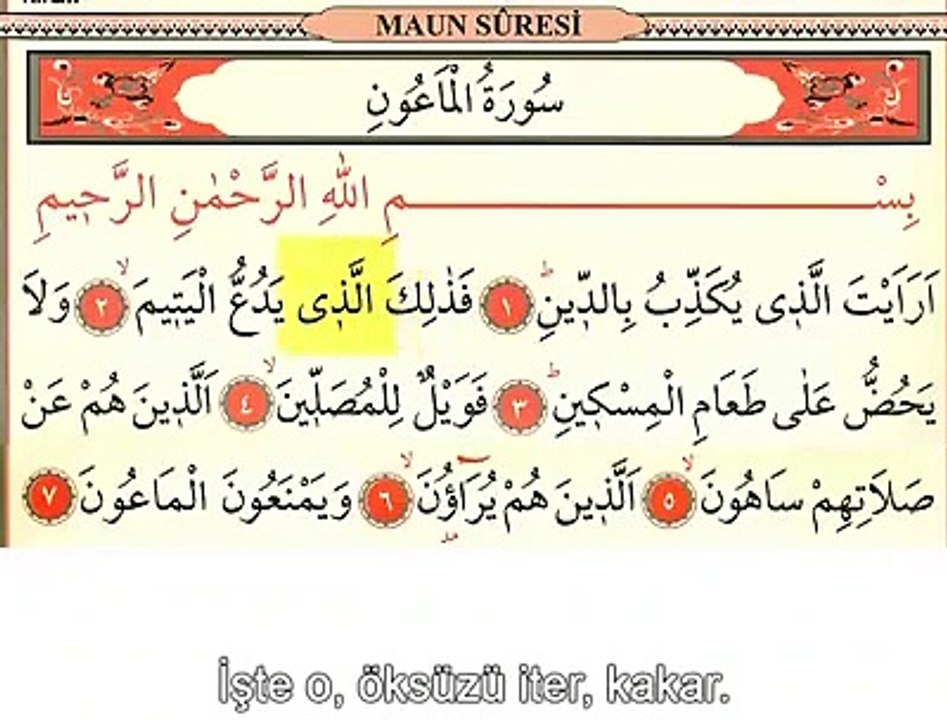 MAUN SÛRESİ
سُورَةُ الْمَاعُونِ
بِسْمِ اللّٰهِ الرَّحْمٰنِ الرَّحٖيمِ
اَرَاَيْتَ الَّذٖى يُكَذِّبُ بِالدّٖينِۜ ﴿١﴾ فَذٰلِكَ الَّذٖى يَدُعُّ الْيَتٖيمَۙ ﴿٢﴾ وَلَا
يَحُضُّ عَلٰى طَعَامِ الْمِسْكٖينِۜ ﴿٣﴾ فَوَيْلٌ لِلْمُصَلّٖينَۙ ﴿٤﴾ اَلَّذٖينَ هُمْ عَنْ
صَلَاتِهِمْ سَاهُونَۙ ﴿٥﴾ اَلَّذٖينَ هُمْ يُرَاؤُ۫نَۙ ﴿٦﴾ وَيَمْنَعُونَ الْمَاعُونَ ﴿٧﴾
İşte o, öksüzü iter, kakar.